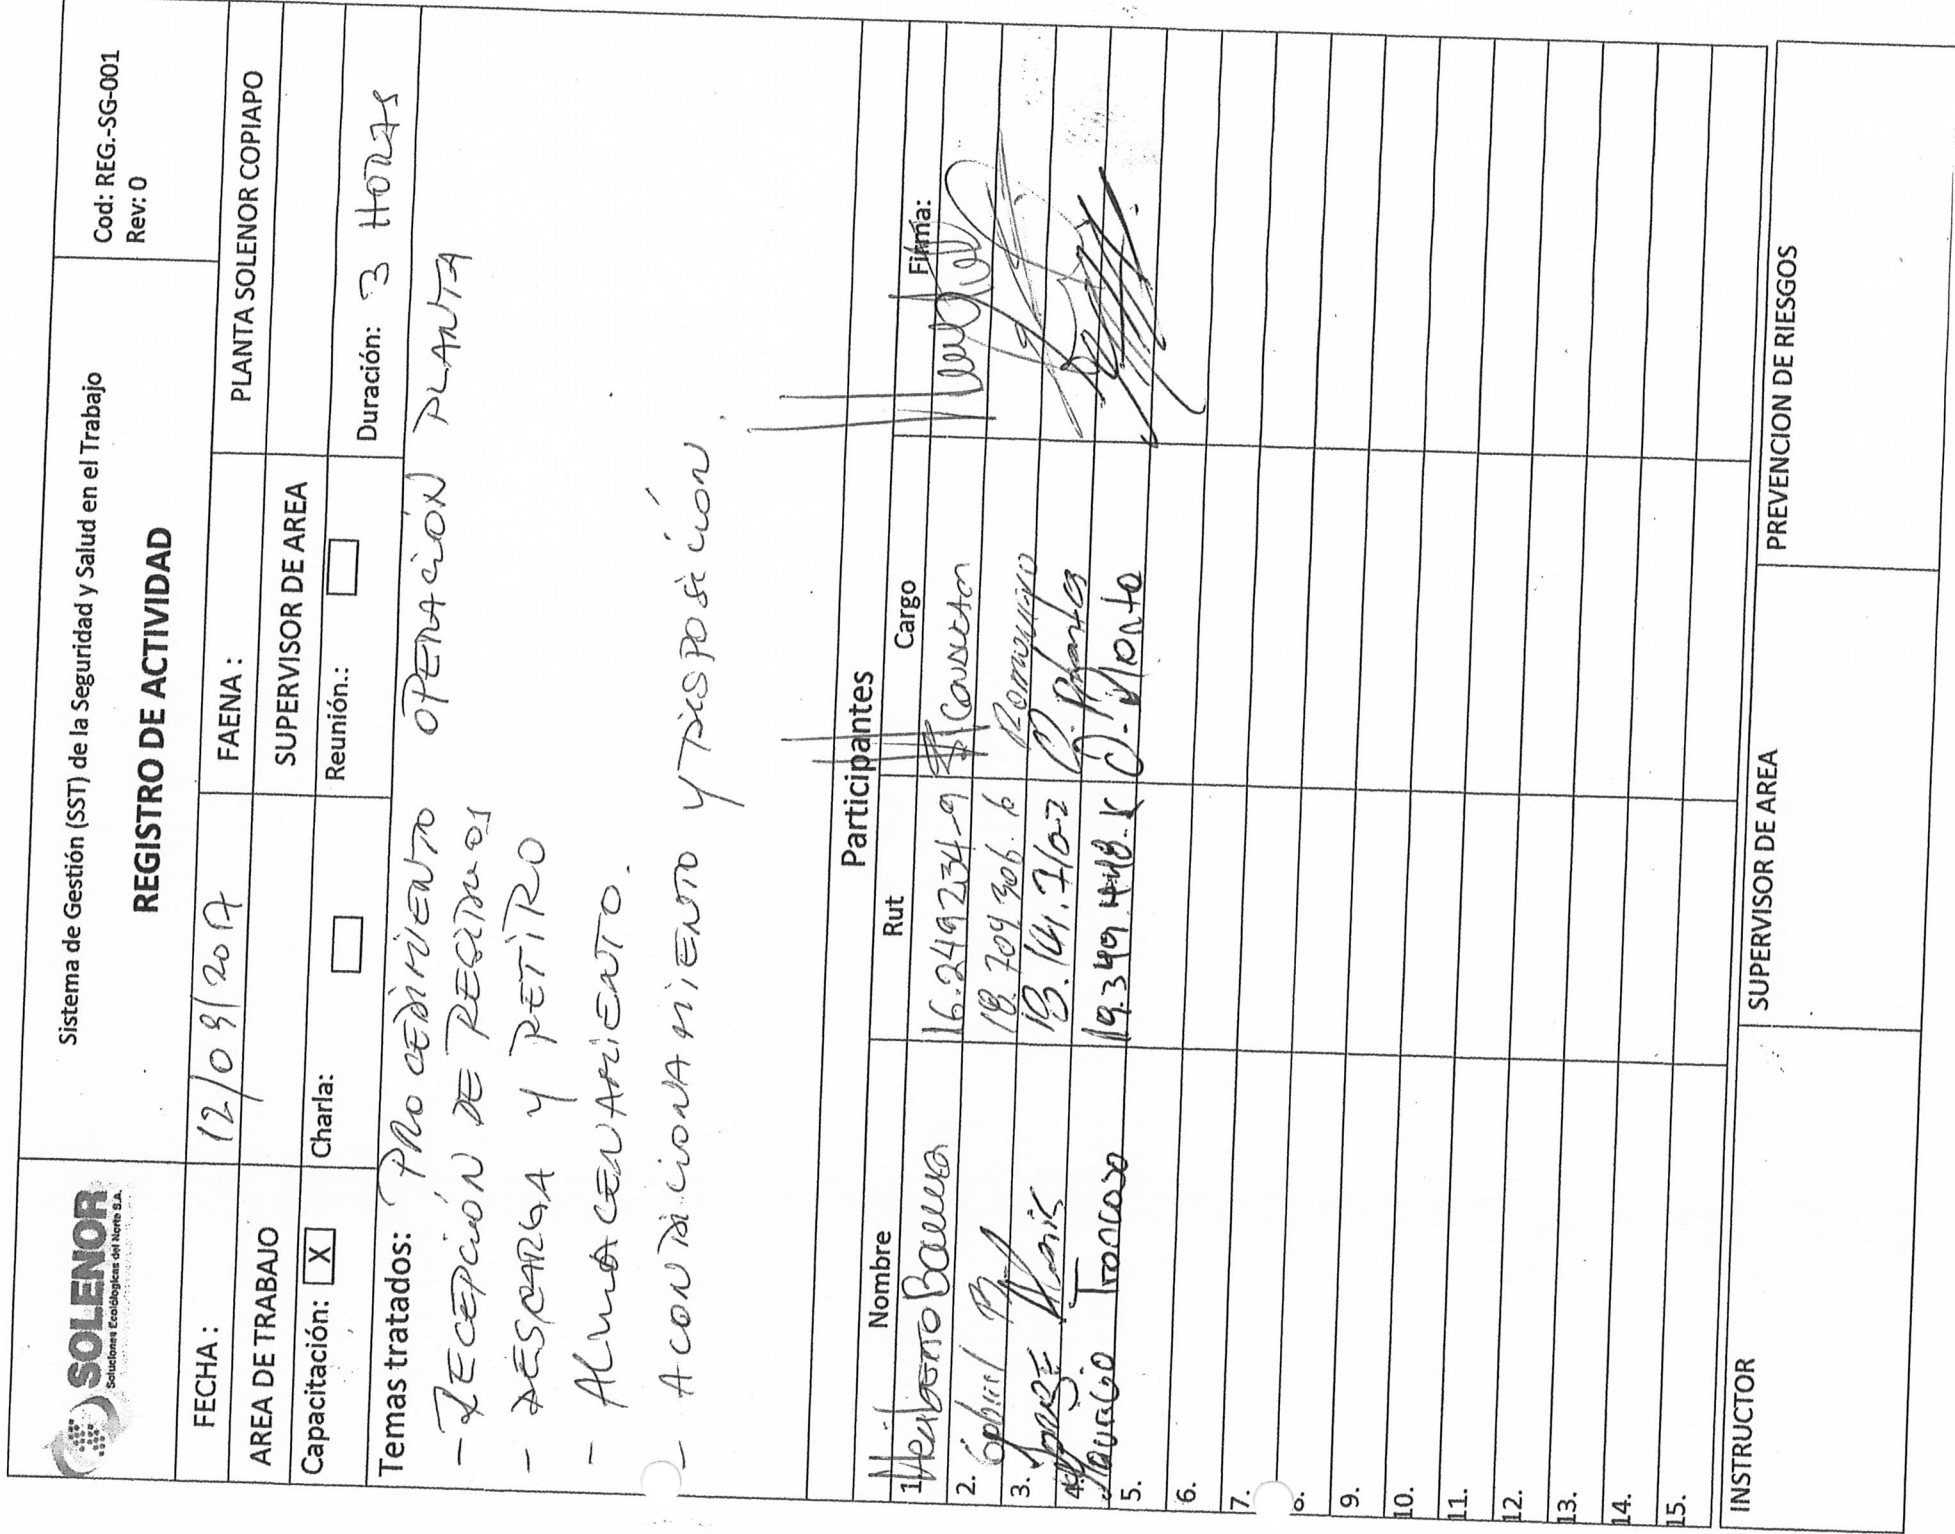 SOLENOR
Soluciones Ecológicas del Norte S.A.
Sistema de Gestión (SST) de la Seguridad y Salud en el Trabajo
REGISTRO DE ACTIVIDAD
Cod: REG.-SG-001
Rev: 0
FECHA : 12/09/2017 FAENA : PLANTA SOLENOR COPIAPO
AREA DE TRABAJO SUPERVISOR DE AREA
Capacitación: X Charla: Reunión.: Duración: 3 HORAS
Temas tratados: PROCEDIMIENTO OPERACIÓN PLANTA
- RECEPCIÓN DE RESIDUOS
- DESCARGA Y RETIRO
- ALMACENAMIENTO.
- ACONDICIONAMIENTO Y DISPOSICIÓN.
Participantes
Nombre Rut Cargo Firma:
1. Heriberto 16.249234-9
2. Gabriel 18.704306.6
3. Jorge
4. Mauricio Troncoso 19.349.448.K O. Planta
5.
6.
7.
8.
9.
10.
11.
12.
13.
14.
15.
INSTRUCTOR SUPERVISOR DE AREA PREVENCION DE RIESGOS